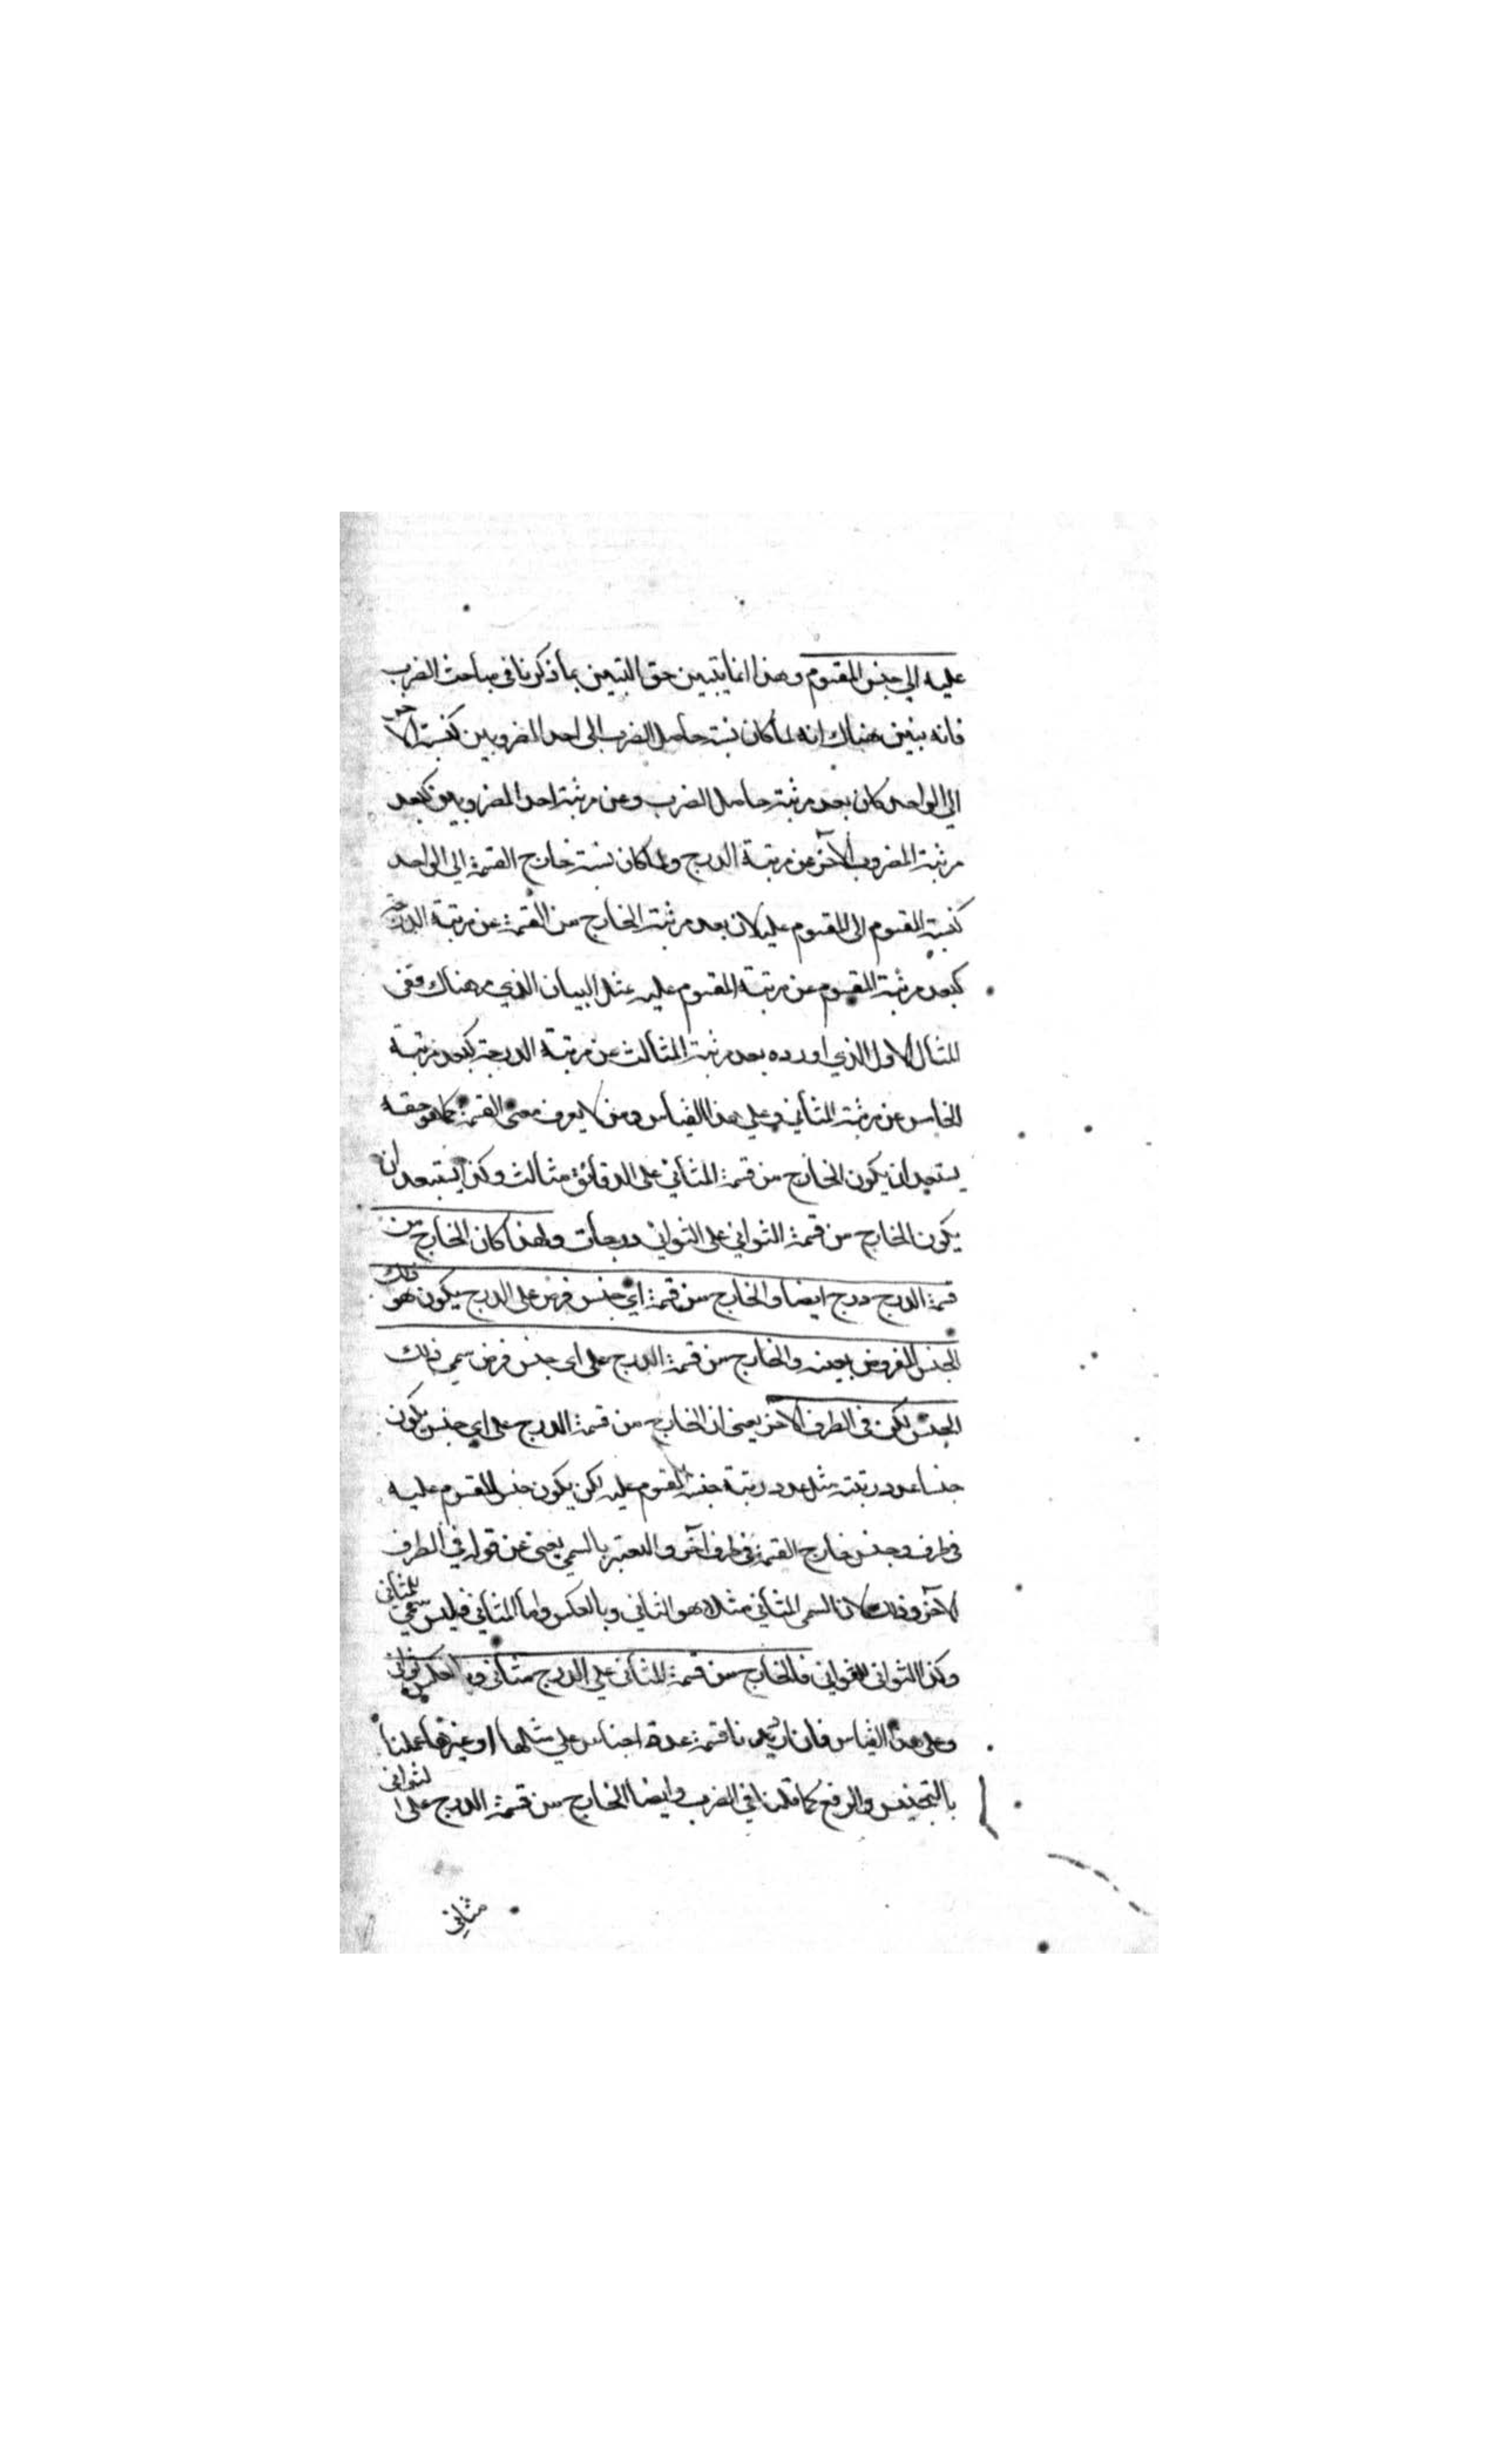 عليه الى جنس المقسوم وهذا انما يتبين حق التبين بما ذكرنا في مباحث الضرب
فانه بين هناك انه لما كان نسبة حاصل الضرب الى احد المضروبين كنسبة الآخر
الى الواحد كان بعد مرتبة حاصل الضرب وعن مرتبة احد المضروبين كبعد
مرتبة المضروب الآخر عن مرتبة الدرج ولما كان نسبة خارج القسمة الى الواحد
كنسبة المقسوم الى المقسوم عليه كان بعد مرتبة الخارج من القسمة عن مرتبة الدرجة
كبعد مرتبة المقسوم عن مرتبة المقسوم عليه بمثل البيان الذي مر هناك ففي
المثال الاول الذي اورده بعد مرتبة المثالث عن مرتبة الدرجة كبعد مرتبة
الخامس عن مرتبة المثاني وعلى هذا القياس ومن لا يعرف معنى القسمة كما هو حقه
يستبعد ان يكون الخارج من قسمة المثاني على الدقائق مثالث وكذا يستبعد ان
يكون الخارج من قسمة الثواني على الثواني درجات ولهذا كان الخارج من
قسمة الدرج درج ايضا والخارج من قسمة اي جنس فرض على الدرج يكون هو ذلك
الجنس المفروض بعينه والخارج من قسمة الدرج على اي جنس فرض سمي ذلك
الجنس لكن في الطرف الآخر يعني ان الخارج من قسمة الدرج على اي جنس يكون
جنسا عدد رتبته مثل عدد رتبة جنس المقسوم عليه لكن يكون جنس المقسوم عليه
في طرف وجنس خارج القسمة في طرف آخر والتعبير بالسمي يغني عن قوله في الطرف
الآخر وذلك لان السمي المثاني مثلا هو الثاني وبالعكس واما المثاني فليس سمي للمثاني
وكذا الثواني للثواني فالخارج من قسمة المثاني على الدرج مثاني وبالعكس ثواني
وعلى هذا القياس فان اريد نا قسمة عدة اجناس على مثلها او غيرها عملنا
بالتجنيس والرفع كما قلنا في الضرب وايضا الخارج من قسمة الدرج على الثواني
مثاني